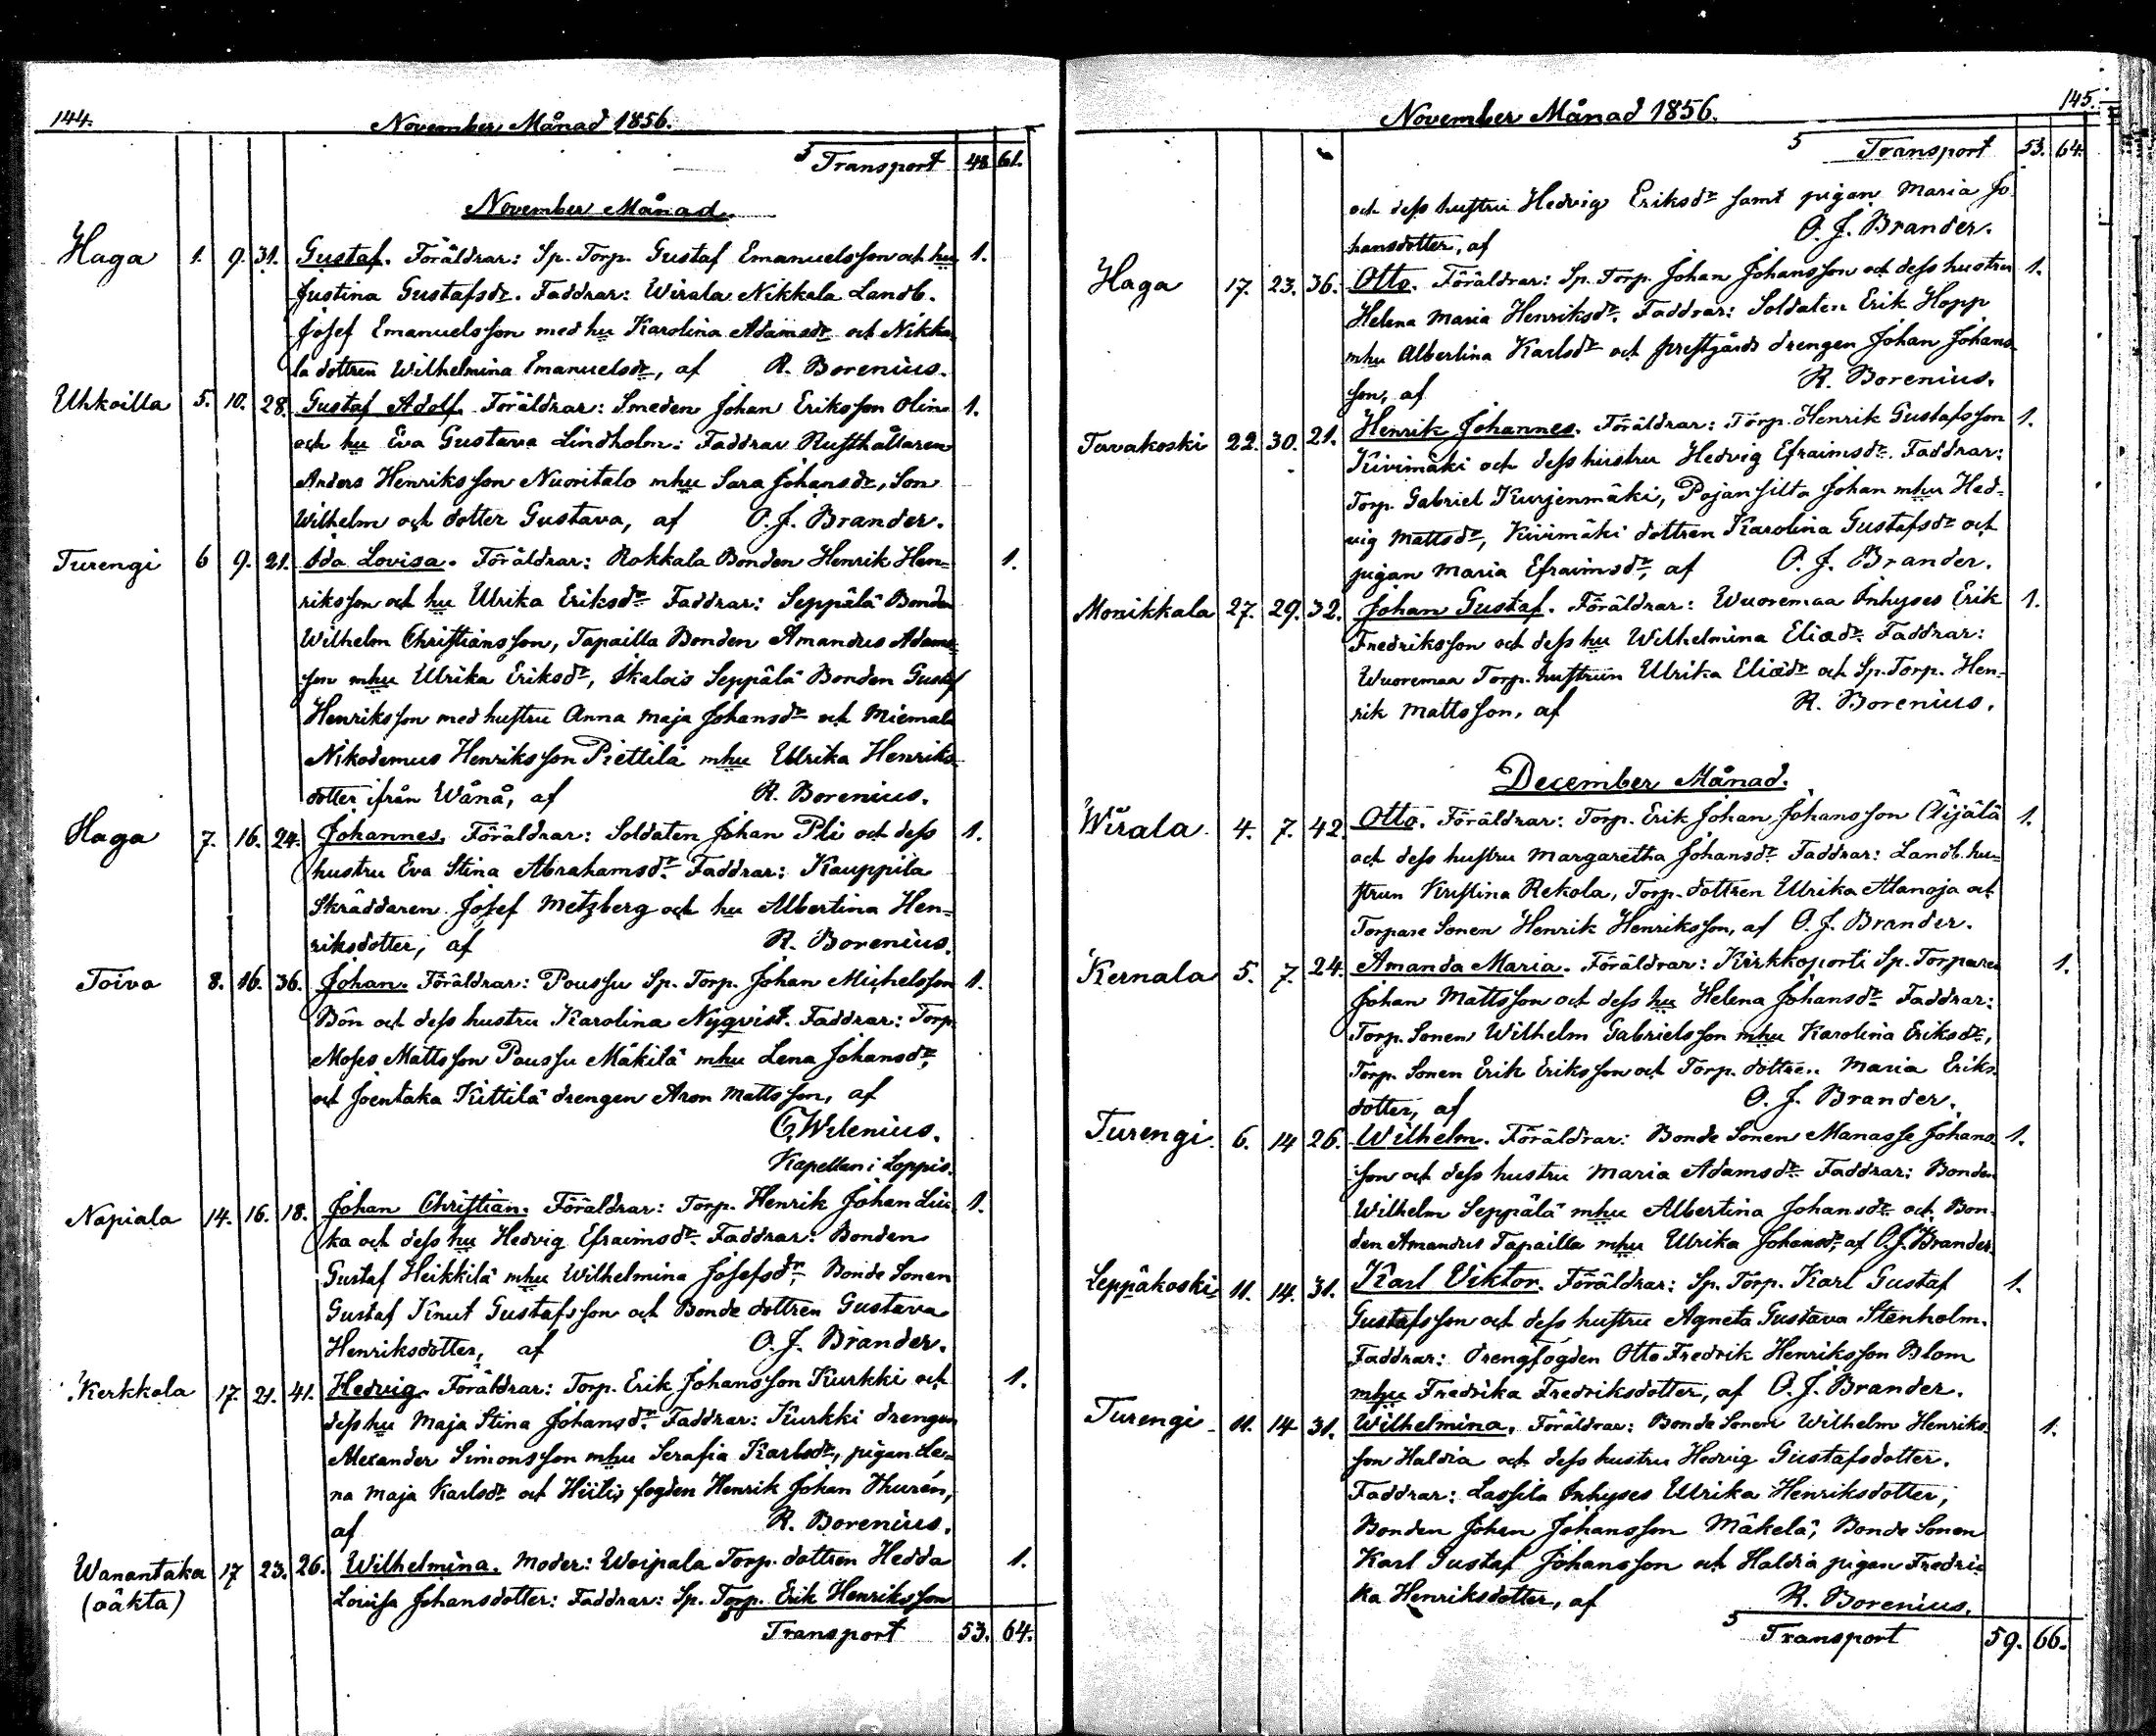 144. November Månad 1856.
5 Transport 48 61.
November Månad.
Haga 1. 9. 31. Gustaf. Föräldrar: Sp. Torp. Gustaf Emanuelsson och hu 1.
Justina Gustafsdr. Faddrar: Wirala Nikkala Landb.
Josef Emanuelsson med hu Karolina Adamsdr och Nikka
la dottren Wilhelmina Emanuelsdr, af R. Borenius.
Uhkoilla 5. 10. 28. Gustaf Adolf. Föräldrar: Smeden Johan Eriksson Olin 1.
och hu Eva Gustava Lindholm: Faddrar Rusthållaren
Anders Henriksson Nuoritalo mhu Sara Johansdr, Son
Wilhelm och dotter Gustava, af O. J. Brander.
Turengi 6 9. 21. Ida Lovisa. Föräldrar: Rokkala Bonden Henrik Hen= 1.
riksson och hu Ulrika Eriksdr Faddrar: Seppälä Bonden
Wilhelm Christiansson, Tapailla Bonden Amandus Adams=
son mhu Ulrika Eriksdr, Skalois Seppälä Bonden Gustaf
Henriksson med hustru Anna Maja Johansdr och Miemala
Nikodemus Henriksson Piettilä mhu Ulrika Henriks
dotter ifrån Wånå, af R. Borenius.
Haga 7. 16. 24. Johannes. Föräldrar: Soldaten Johan Pli och dess 1.
hustru Eva Stina Abrahamsdr. Faddrar: Kauppila
Skräddaren Josef Metzberg och hu Albertina Hen=
riksdotter, af R. Borenius.
Toivo 8. 16. 36. Johan. Föräldrar: Poussu Sp. Torp. Johan Michelsson 1.
Bön och dess hustru Karolina Nyqvist. Faddrar: Torp
Moses Mattsson Poussu Mäkilä mhu Lena Johansdr,
och Joentaka Kittilä drengen Aron Mattsson, af
G. Wilenius.
Kapellan i Loppis.
Napiala 14. 16. 18. Johan Christian. Föräldrar: Torp. Henrik Johan Liu 1.
ka och dess hu Hedvig Efraimsdr. Faddrar: Bonden
Gustaf Heikkilä mhu Wilhelmina Josefsdr, Bonde Sonen
Gustaf Knut Gustafsson och Bonde dottren Gustava
Henriksdotter, af O. J. Brander.
Kerkkola 17. 21. 41. Hedvig. Föräldrar: Torp. Erik Johansson Kurkki och 1.
dess hu Maja Stina Johansdr. Faddrar: Kurkki drengen
Alexander Simonsson mhu Serafia Karlsdr, pigan Le=
na Maja Karlsdr och Hiitis fogden Henrik Johan Thurén,
af R. Borenius.
Wanantaka 17 23. 26. Wilhelmina. Moder: Woipala Torp. dottren Hedda 1.
(oäkta) Louisa Johansdotter: Faddrar: Sp. Torp. Erik Henriksson
Transport 53. 64.
November Månad 1856. 145.
5 Transport 53. 64.
och dess hustru Hedvig Eriksdr samt pigan Maria Jo
hansdotter, af O. J. Brander.
Haga 17. 23. 36. Otto. Föräldrar: Sp. Torp. Johan Johansson och dess hustru 1.
Helena Maria Henriksdr. Faddrar: Soldaten Erik Hopp
mhu Albertina Karlsdr och prestgårds drengen Johan Johans
son, af R. Borenius.
Tavakoski 22. 30. 21. Henrik Johannes. Föräldrar: Torp. Henrik Gustafsson 1.
Kivimäki och dess hustru Hedvig Efraimsdr. Faddrar:
Torp. Gabriel Kurjenmäki, Pajansilta Johan mhu Hed=
vig Mattsdr, Kivimäki dottren Karolina Gustafsdr och
pigan Maria Efraimsdr, af O. J. Brander.
Monikkala 27. 29. 32. Johan Gustaf. Föräldrar: Wuoremaa Inhyses Erik 1.
Fredriksson och dess hu Wilhelmina Eliædr. Faddrar:
Wuoremaa Torp. hustrun Ulrika Eliædr och Sp. Torp. Hen=
rik Mattsson, af R. Borenius.
December Månad.
Wirala 4. 7. 42. Otto. Föräldrar: Torp. Erik Johan Johansson Äijälä 1.
och dess hustru Margaretha Johansdr Faddrar: Landb. hu=
strun Kristina Rekola, Torp. dottren Ulrika Alanoja och
Torpare Sonen Henrik Henriksson, af O. J. Brander.
Kernala 5. 7. 24. Amanda Maria. Föräldrar: Kirkkoporti Sp. Torparen 1.
Johan Mattsson och dess hu Helena Johansdr Faddrar:
Torp. Sonen Wilhelm Gabrielsson mhu Karolina Eriksdr,
Torp. Sonen Erik Eriksson och Torp. dottren Maria Eriks
dotter, af O. J. Brander.
Turengi 6. 14 26. Wilhelm. Föräldrar: Bonde Sonen Manasse Johans= 1.
son och dess hustru Maria Adamsdr Faddrar: Bonden
Wilhelm Seppälä mhu Albertina Johansdr och Bon=
den Amandus Tapailla mhu Ulrika Johansdr, af O. J. Brander.
Leppäkoski 11. 14. 31. Karl Viktor. Föräldrar: Sp. Torp. Karl Gustaf 1.
Gustafsson och dess hustru Agneta Gustava Stenholm.
Faddrar: Drengfogden Otto Fredrik Henriksson Blom
mhu Fredrika Fredriksdotter, af O. J. Brander.
Turengi 11. 14 31. Wilhelmina. Föräldrar: Bonde Sonen Wilhelm Henriks= 1.
son Haldia och dess hustru Hedvig Gustafsdotter.
Faddrar: Lassila Inhyses Ulrika Henriksdotter,
Bonden Johan Johansson Mäkelä, Bonde Sonen
Karl Gustaf Johansson och Haldia pigan Fredri=
ka Henriksdotter, af R. Borenius.
5 Transport 59. 66.